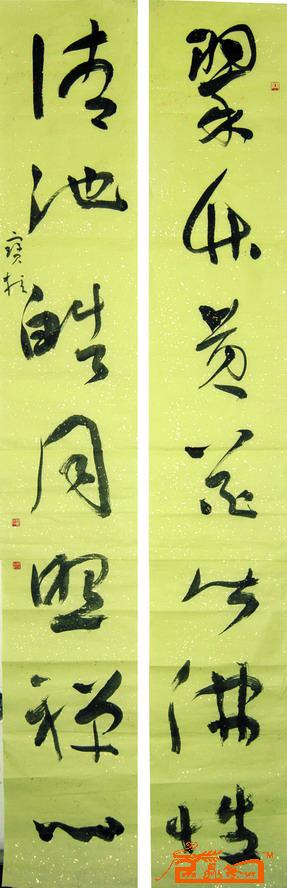 翠竹黄花皆佛性
清池皓月照禪心
寶柱